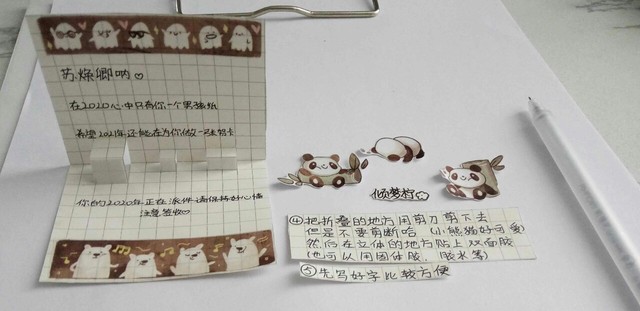 苏焕卿呐♡
在2020心中只有你一个男孩纸
希望2021年还能在为你做一张贺卡
你的2020年正在派件请保持好心情
注意签收♡
倾梦柠
④把折叠的地方用剪刀剪下去
但是不要剪断哈（小熊猫好可爱）
然后在立体的地方贴上双面胶
（也可以用固体胶、胶水等）
⑤先写好字比较方便